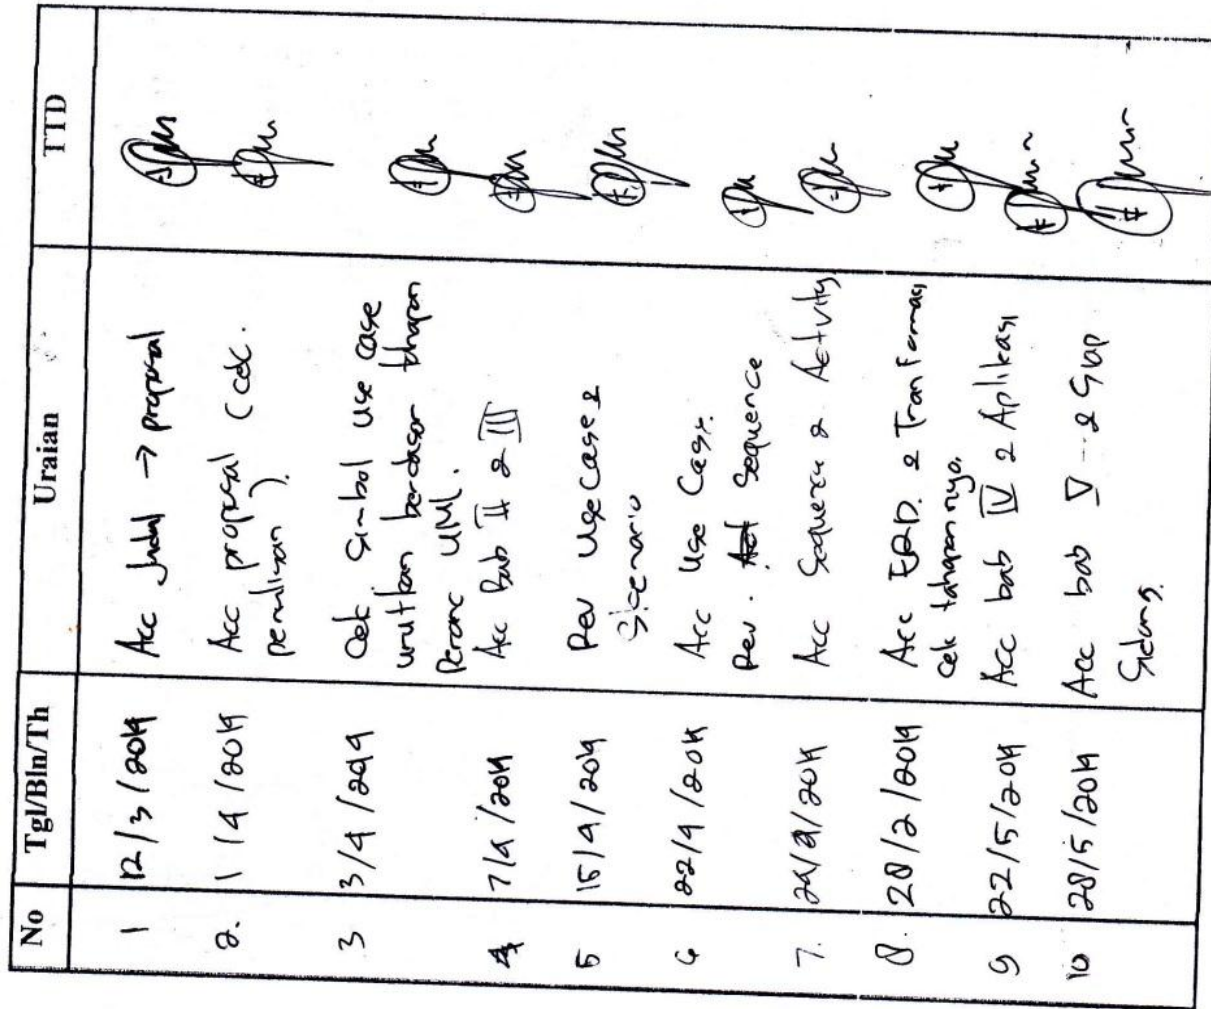 No Tgl/Bln/Th Uraian TTD
1 12/3/2014 Acc Judul → proposal
2. 1/4/2014 Acc proposal (cek.
penulisan).
3 3/4/2014 Cek Simbol Use case
urutkan berdasar tahapan
Peranc UML.
4 7/4/2014 Acc Bab II & III
5 15/4/2014 Rev Use Case &
Skenario
6 22/4/2014 Acc Use Case.
Rev. Sequence
7. /2014 Acc Sequence & Activity
8. 28/2/2014 Acc ERD. & Tranformasi
cek tahapannya.
9 22/5/2014 Acc bab IV & Aplikasi
10 28/5/2014 Acc bab V & Siap
Sidang.